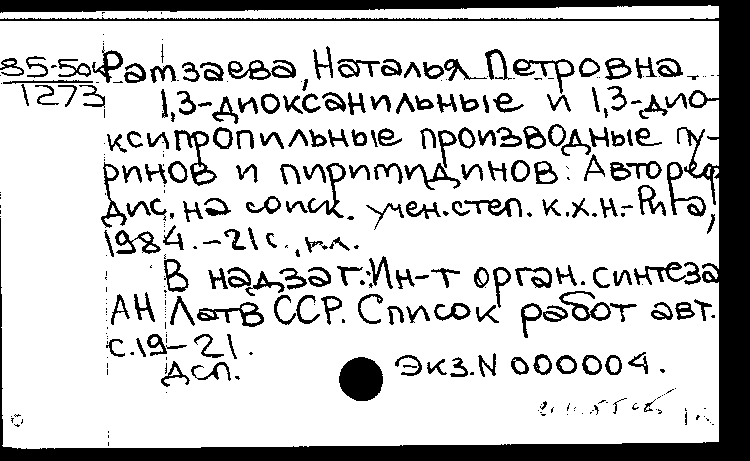 85-50к Рамзаева, Наталья Петровна.
1273 1,3-диоксанильные и 1,3-дио-
ксипропильные производные пу-
ринов и пиримидинов: Автореф
дис. на соиск. учен. степ. к.х.н.-Рига,
1984.-21с., ил.
В надзаг.: Ин-т орган. синтеза
АН Латв ССР. Список работ авт.
с.19-21.
ДСП. Экз.N 000004.